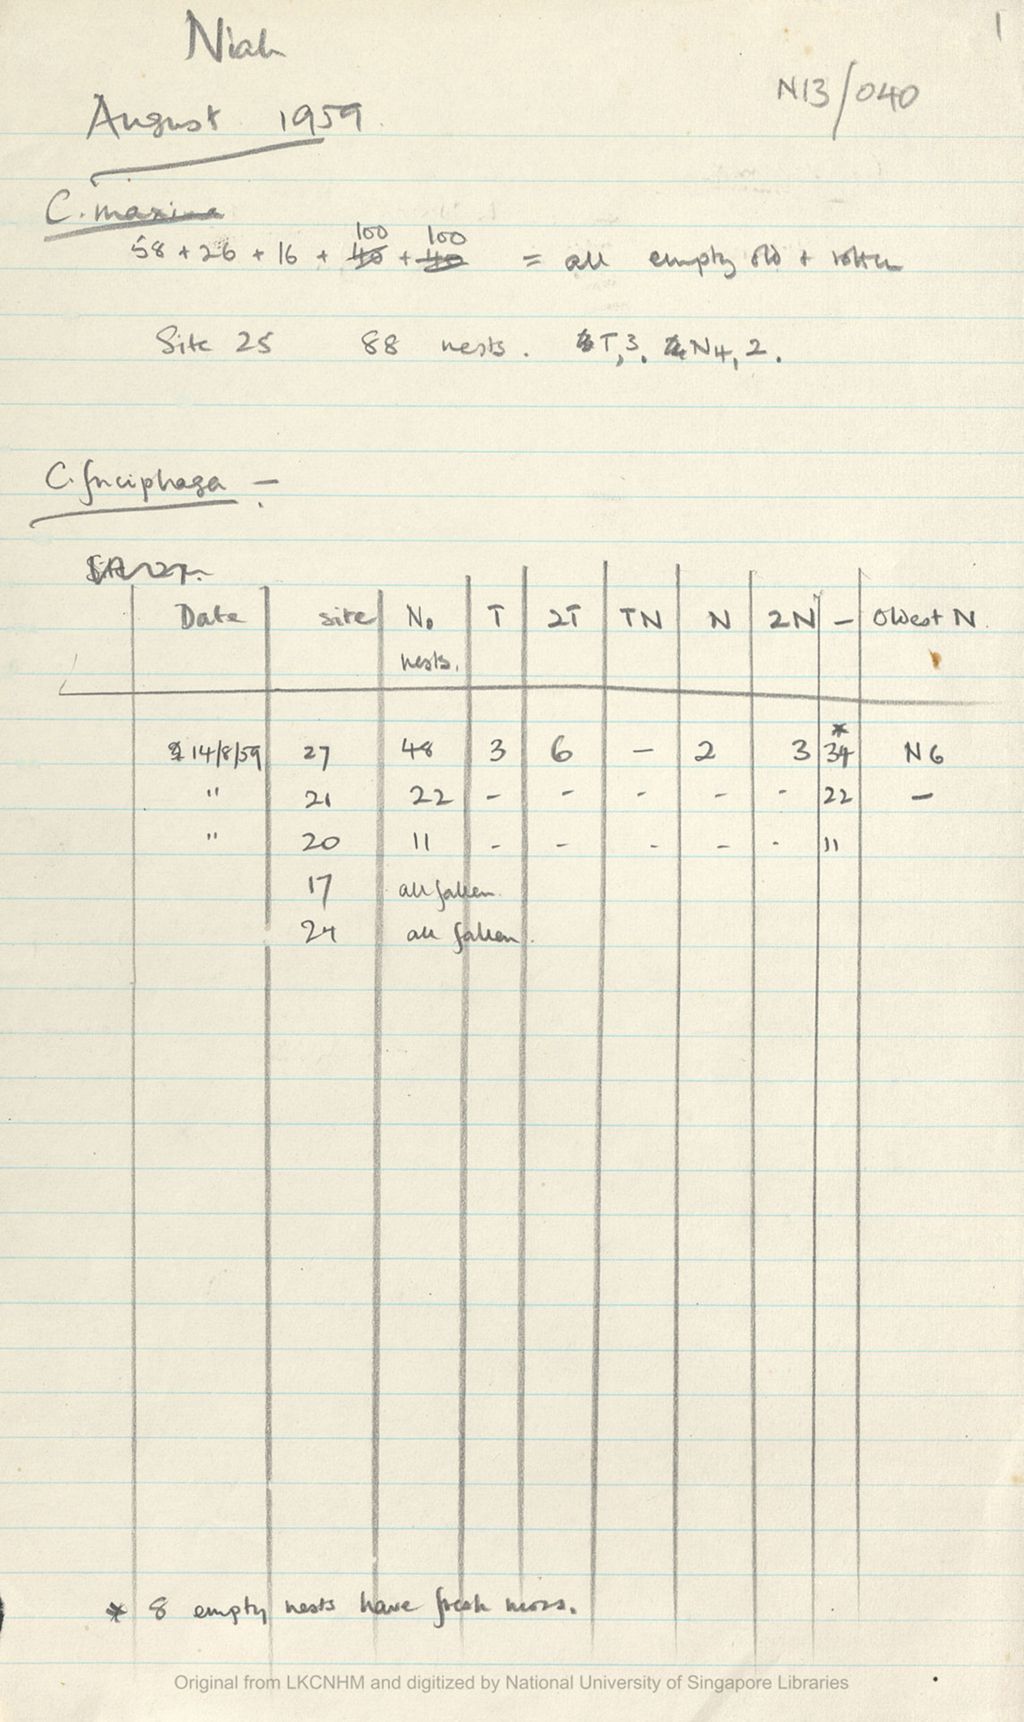 1
Niah
N13/040
August 1959
C. maxima
100 100
58 + 26 + 16 + 40 + 40 = all empty old + rotten
Site 25 88 nests. T,3. N4, 2.
C. fuciphaga -
Date site No nests. T 2T TN N 2N - Oldest N
*
14/8/59 27 48 3 6 - 2 3 34 N6
" 21 22 - - - - - 22 -
" 20 11 - - - - - 11
17 all fallen.
24 all fallen.
* 8 empty nests have fresh moss.
Original from LKCNHM and digitized by National University of Singapore Libraries